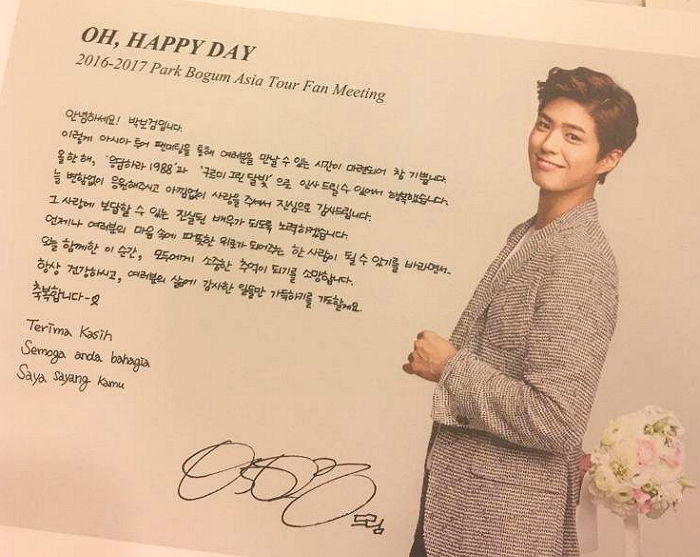 OH, HAPPY DAY
2016-2017 Park Bogum Asia Tour Fan Meeting
안녕하세요! 박보검입니다.
이렇게 아시아 투어 팬미팅을 통해 여러분을 만날 수 있는 시간이 마련되어 참 기쁩니다.
올 한해, '응답하라 1988'과 '구르미 그린 달빛'으로 인사 드릴 수 있어서 행복했습니다.
늘 변함없이 응원해주고 아낌없이 사랑을 주셔서 진심으로 감사드립니다.
그 사랑에 보답할 수 있는 진실된 배우가 되도록 노력하겠습니다.
언제나 여러분의 마음 속에 따뜻한 위로가 되어주는 한 사람이 될 수 있기를 바라면서-
오늘 함께한 이 순간, 모두에게 소중한 추억이 되기를 소망합니다.
항상 건강하시고, 여러분의 삶에 감사한 일들만 가득하기를 기도할게요.
축복합니다-
Terima Kasih
Semoga anda bahagia
Saya sayang kamu
드림